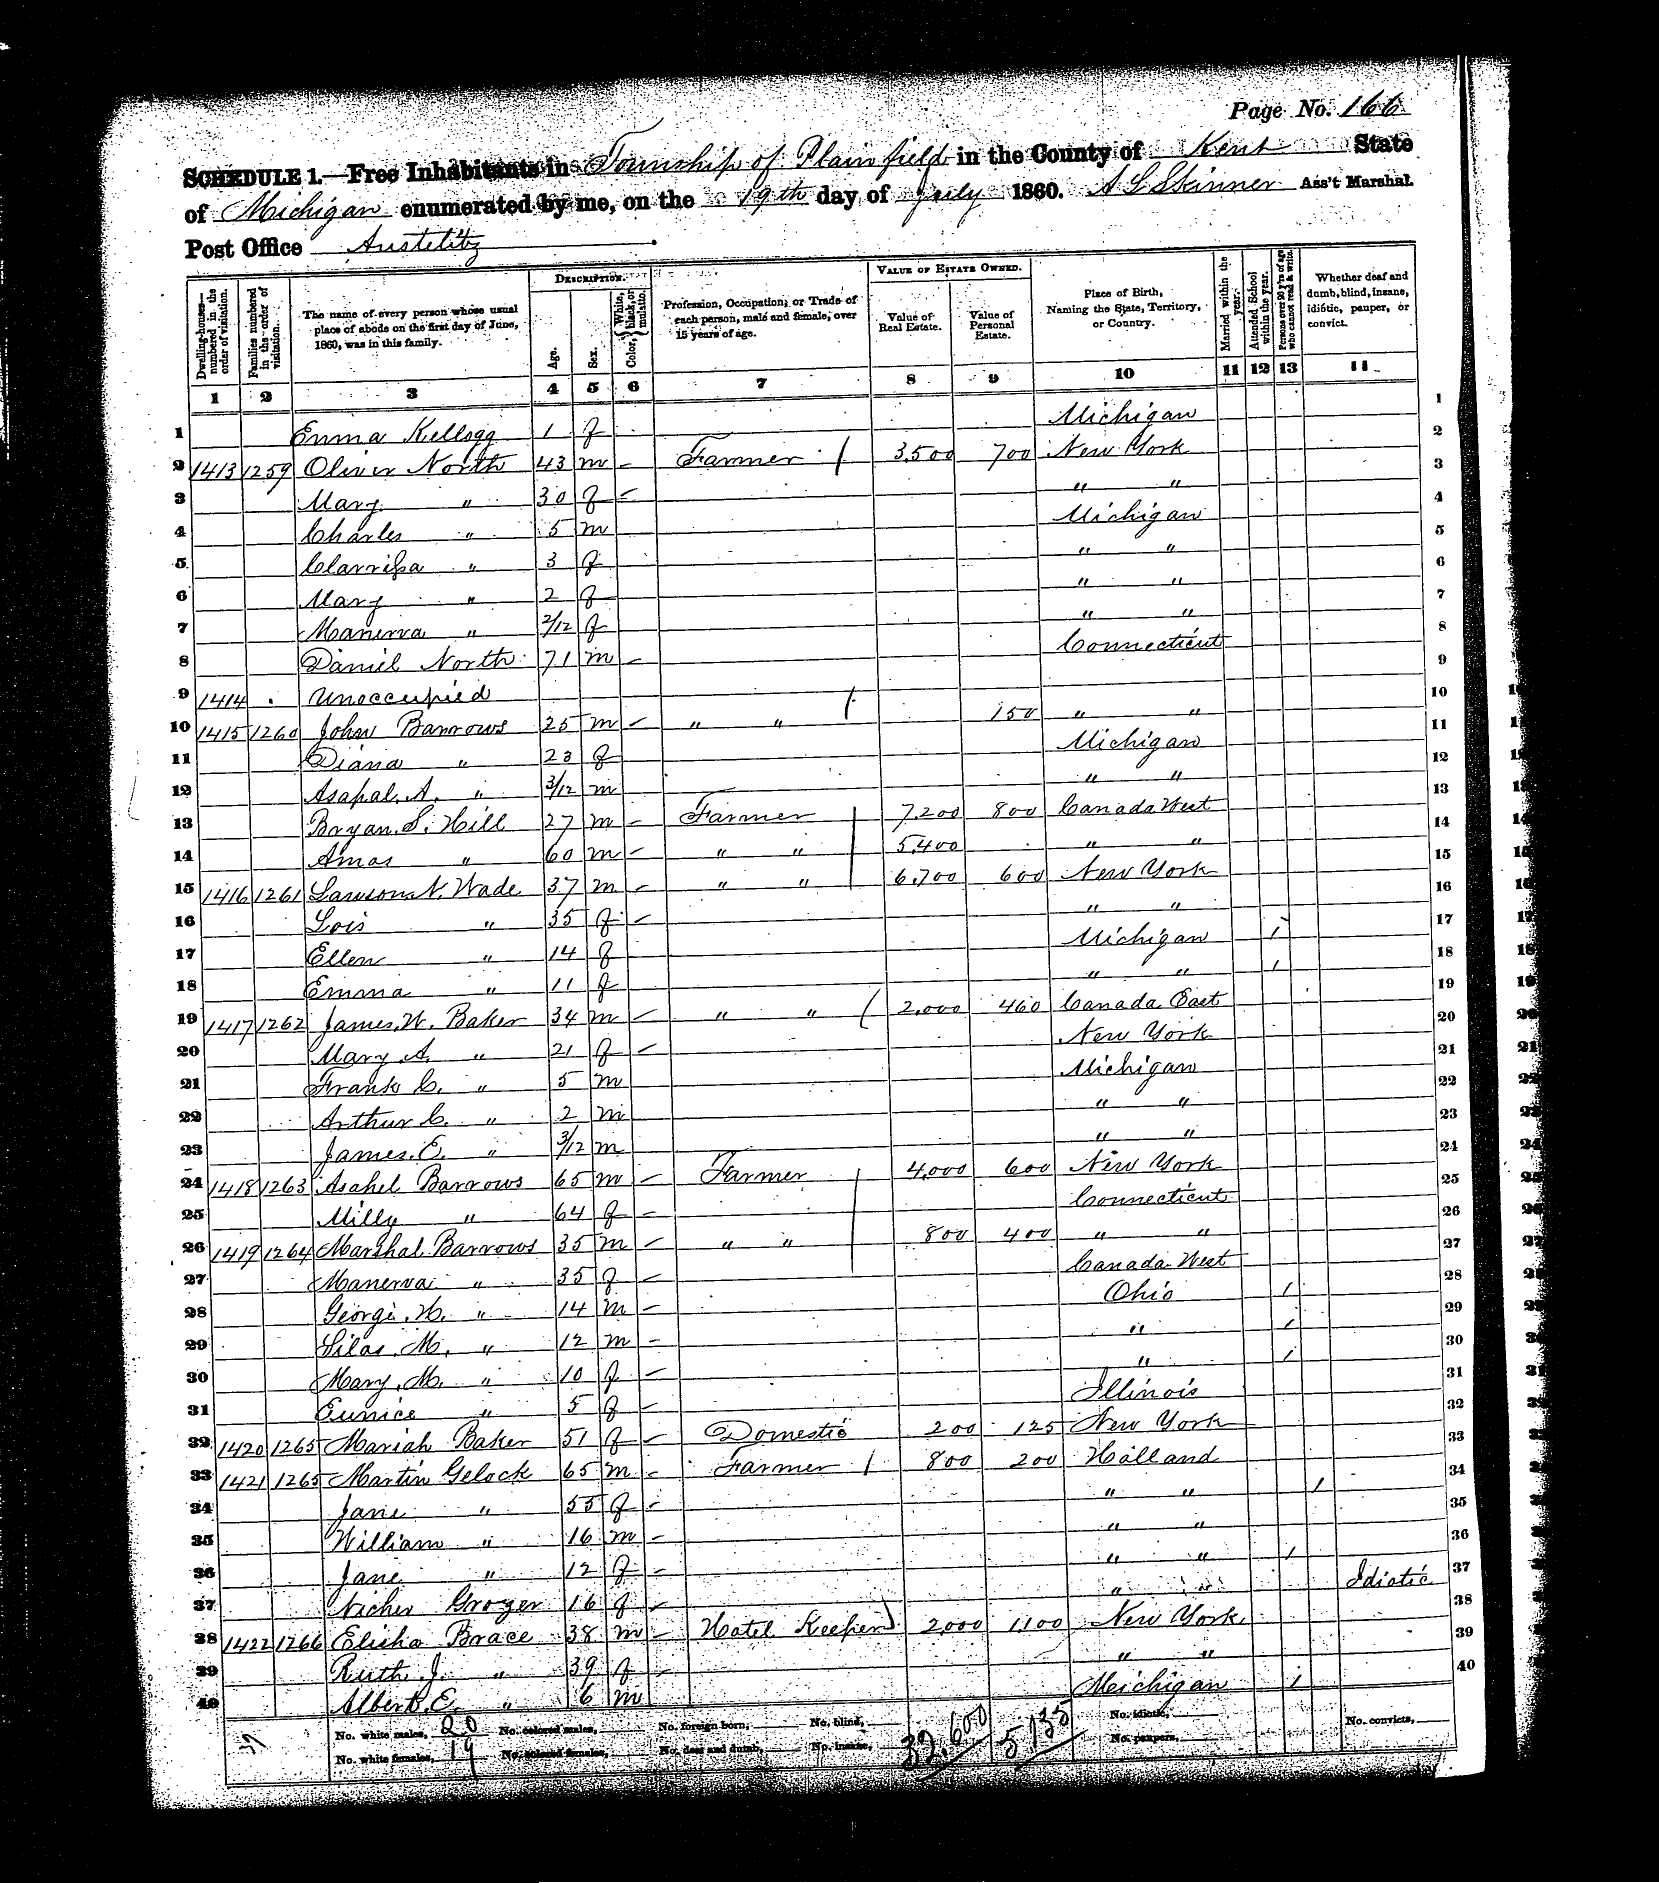 Page No. 166
SCHEDULE 1.—Free Inhabitants in Township of Plainfield in the County of Kent State
of Michigan enumerated by me, on the 19th day of July 1860. A L Skinner Ass't Marshal.
Post Office Austelitz
Dwelling-houses—numbered in the order of visitation. Families numbered in the order of visitation. The name of every person whose usual place of abode on the first day of June, 1860, was in this family. DESCRIPTION. Age. Sex. Color, White, black, or mulatto. Profession, Occupation, or Trade of each person, male and female, over 15 years of age. VALUE OF ESTATE OWNED. Value of Real Estate. Value of Personal Estate. Place of Birth, Naming the State, Territory, or Country. Married within the year. Attended School within the year. Persons over 20 y'rs of age who cannot read & write. Whether deaf and dumb, blind, insane, idiotic, pauper, or convict.
1 2 3 4 5 6 7 8 9 10 11 12 13 14
1 Emma Kellogg 1 f Michigan 1
2 1413 1259 Oliver North 43 m – Farmer / 3,500 700 New York 2
3 Mary " 30 f – " " 3
4 Charles " 5 m Michigan 4
5 Clarrissa " 3 f " " 5
6 Mary " 2 f " " 6
7 Manerva " 2/12 f " " 7
8 Daniel North 71 m – Connecticut 8
9 1414 . Unoccupied 9
10 1415 1260 John Barrows 25 m – " " / 150 " " 10
11 Diana " 23 f Michigan 11
12 Asapal. A. " 3/12 m " " 12
13 Bryan. S. Hill 27 m – Farmer / 7,200 800 Canada West 13
14 Amos " 60 m – " " / 5,400 " " 14
15 1416 1261 Lawson N. Wade 37 m – " " / 6,700 600 New York 15
16 Lois " 35 f – " " 16
17 Ellen " 14 f Michigan / 17
18 Emma " 11 f " " / 18
19 1417 1262 James. W. Baker 34 m – " " / 2,000 460 Canada East 19
20 Mary A. " 21 f – New York 20
21 Frank C. " 5 m Michigan 21
22 Arthur C. " 2 m " " 22
23 James. E. " 3/12 m " " 23
24 1418 1263 Asahel Barrows 65 m – Farmer / 4,000 600 New York 24
25 Milly " 64 f – Connecticut 25
26 1419 1264 Marshal Barrows 35 m – " " / 800 400 " " 26
27 Manerva " 35 f – Canada West 27
28 George. H. " 14 m – Ohio / 28
29 Silas. M. " 12 m – " / 29
30 Mary. M. " 10 f – " / 30
31 Eunice " 5 f – Illinois 31
32 1420 1265 Mariah Baker 51 f – Domestic 200 125 New York 32
33 1421 1265 Martin Gelock 65 m – Farmer / 800 200 Holland 33
34 Jane " 55 f – " " / 34
35 William " 16 m – " " 35
36 Jane " 12 f – " " / 36
37 Grozer 16 f – " " Idiotic 37
38 1422 1266 Elisha Brace 38 m – Hotel Keeper 2,000 1100 New York 38
39 Ruth. J. " 39 f – " " 39
40 Albert. E. " 6 m Michigan / 40
No. white males, 20 No. colored males, No. foreign born, No. blind, 32,600 5135 No. idiotic, No. convicts,
No. white females, 19 No. colored females, No. deaf and dumb, No. insane, No. paupers,